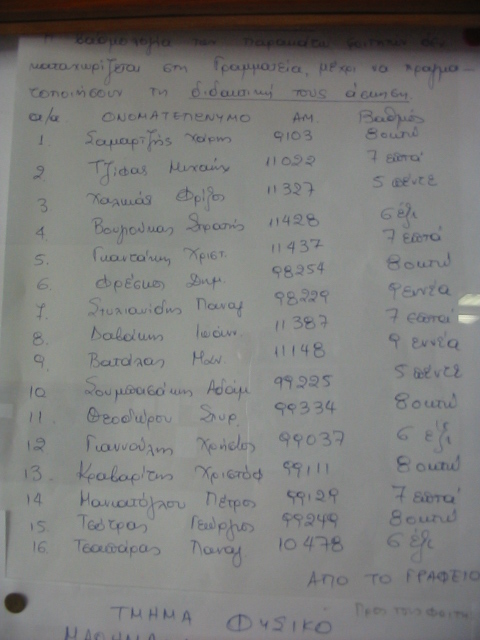 Η βαθμολογία των παρακάτω φοιτητών δεν
καταχωρίζεται στη Γραμματεία, μέχρι να πραγμα-
τοποιήσουν τη διδακτική τους άσκηση.
α/α. ΟΝΟΜΑΤΕΠΕΝΥΜΟ ΑΜ. Βαθμός
1. Σαμαρτζής Χάρης 9103 8 οκτώ
2 Τζίφας Μιχαήλ 11022 7 επτά
3 Χαλκιάς Φρίξος 11327 5 πέντε
4. Βουρούκας Στρατής 11428 6 έξι
5. Γιαντάκης Χριστ. 11437 7 επτά
6. Φρέσκος Δημ. 98254 8 οκτώ
7. Στυλιανίδης Παναγ 98229 9 εννέα
8. Δαβάκης Ιωάν 11387 7 επτά
9. Βατάλας Μαν. 11148 9 εννέα
10 Σουμπασάκης Αδάμ 99225 5 πέντε
11 Θεοδώρου Σπυρ. 99334 8 οκτώ
12 Γιαννούλης Χρήστος 99037 6 έξι
13. Κραβαρίτης Χριστόφ 99111 8 οκτώ
14 Μανιατόγλου Πέτρος 99129 7 επτά
15. Τσότρας Γεώργιος 99249 8 οκτώ
16. Τσαπάρας Παναγ 10478 6 έξι
ΑΠΟ ΤΟ ΓΡΑΦΕΙΟ
ΤΜΗΜΑ ΦΥΣΙΚΟ
Προς τους φοιτη
ΜΑΘΗΜΑ